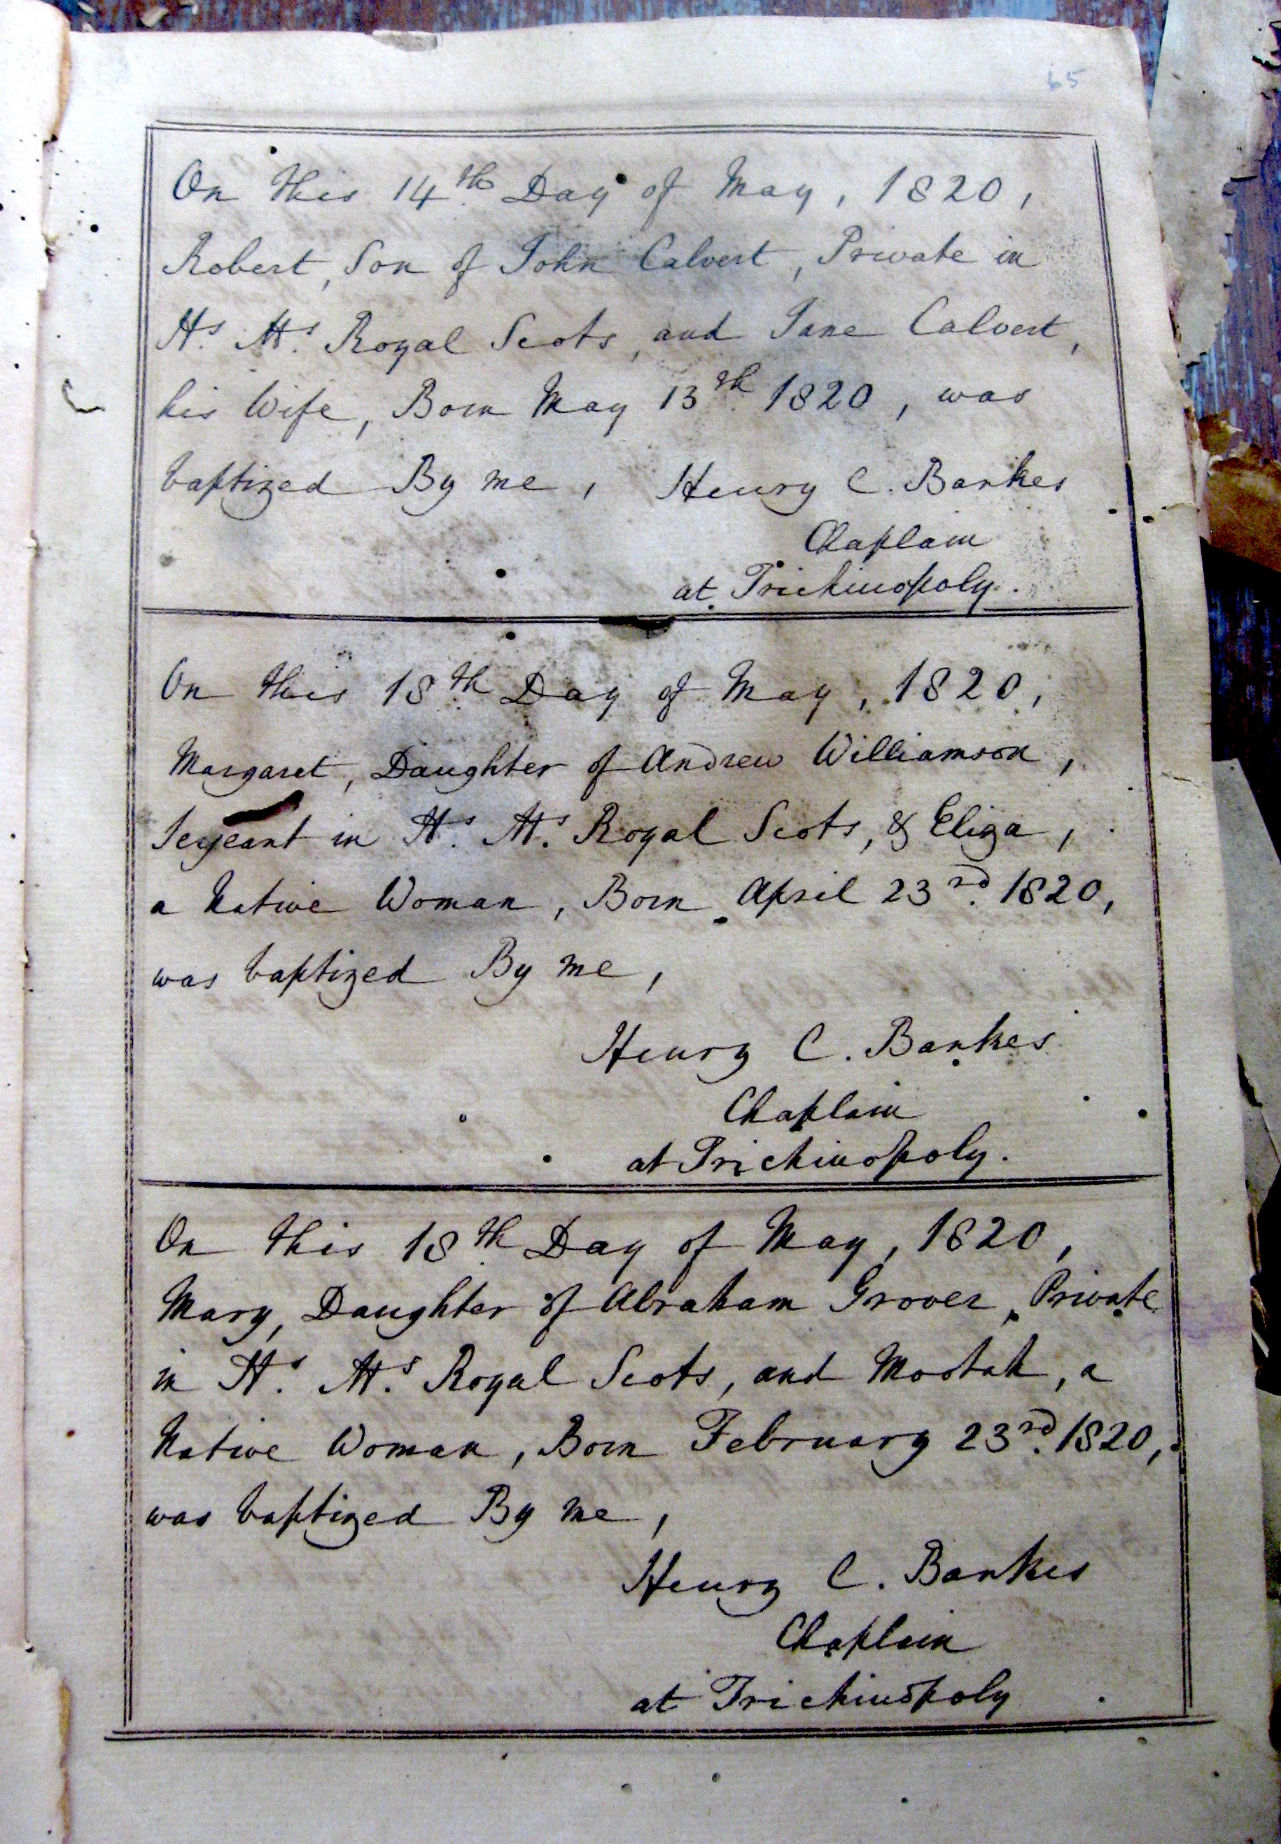 65
On this 14th Day of May, 1820,
Robert, Son of John Calvert, Private in
Hs. Ms. Royal Scots, and Jane Calvert,
his Wife, Born May 13th 1820, was
baptized By me, Henry C. Bankes
Chaplain
at Trichinopoly.
On this 18th Day of May, 1820,
Margaret, Daughter of Andrew Williamson,
Serjeant in Hs. Ms. Royal Scots, & Eliza,
a Native Woman, Born April 23rd. 1820,
was baptized By me,
Henry C. Bankes
Chaplain
at Trichinopoly.
On this 18th Day of May, 1820,
Mary, Daughter of Abraham Grover, Private
in Hs. Ms. Royal Scots, and Mootah, a
Native Woman, Born February 23rd. 1820,
was baptized By me,
Henry C. Bankes
Chaplain
at Trichinopoly